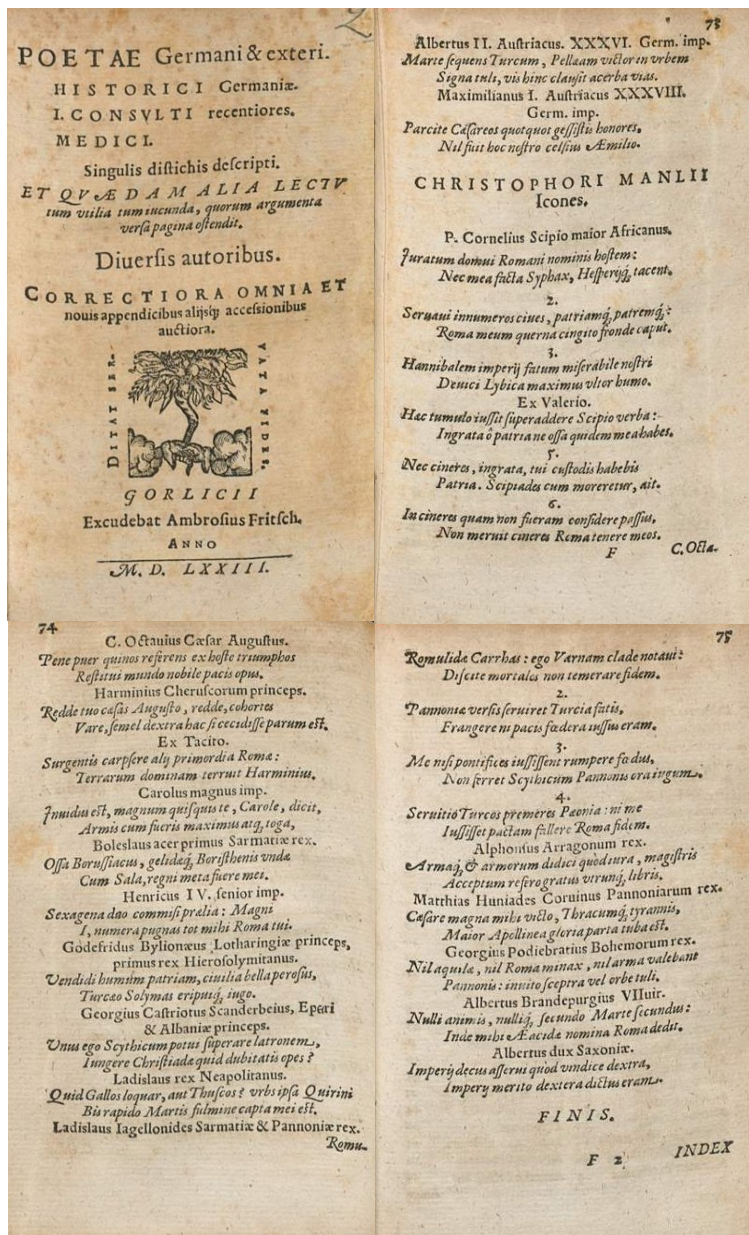 2
POETAE Germani & exteri.
HISTORICI Germaniæ.
I. CONSVLTI recentiores.
MEDICI.
Singulis distichis descripti.
ET QVÆDAM ALIA LECTV
tum vtilia tum iucunda, quorum argumenta
versa pagina ostendit.
Diuersis autoribus.
CORRECTIORA OMNIA ET
nouis appendicibus alijsq; accessionibus
auctiora.
DITAT SER-
VATA FIDES.
GORLICII
Excudebat Ambrosius Fritsch.
ANNO
M. D. LXXIII.
73
Albertus II. Austriacus. XXXVI. Germ. imp.
Marte sequens Turcum, Pellæam victor in vrbem
Signa tuli, vis hinc clausit acerba vias.
Maximilianus I. Austriacus XXXVIII.
Germ. imp.
Parcite Cæsareos quotquot gessistis honores,
Nil fuit hoc nostro celsius Æmilio.
CHRISTOPHORI MANLII
Icones.
P. Cornelius Scipio maior Africanus.
Juratum domui Romani nominis hostem:
Nec mea facta Syphax, Hesperijq́; tacent.
2.
Seruaui innumeros ciues, patriamq́; patremq́;:
Roma meum querna cingito fronde caput.
3.
Hannibalem imperij fatum miserabile nostri
Deuici Lybica maximus vltor humo.
Ex Valerio.
Hæc tumulo iussit superaddere Scipio verba:
Ingrata ô patria ne ossa quidem mea habes.
5.
Nec cineres, ingrata, tui custodis habebis
Patria. Scipiades cum moreretur, ait.
6.
In cineres quam non fueram considere passus,
Non meruit cineres Roma tenere meos.
F
C. Octa-
74
C. Octauius Cæsar Augustus.
Pene puer quinos referens ex hoste triumphos
Restitui mundo nobile pacis opus.
Harminius Cheruscorum princeps.
Redde tuo casas Augusto, redde, cohortes
Vare, semel dextra hac si cecidisse parum est.
Ex Tacito.
Surgentis carpsere alij primordia Romæ:
Terrarum dominam terruit Harminius.
Carolus magnus imp.
Inuidus est, magnum quisquis te, Carole, dicit,
Armis cum fueris maximus atq́; toga,
Boleslaus acer primus Sarmatiæ rex.
Ossa Borussiacus, gelidæq́; Boristhenis vndæ
Cum Sala, regni meta fuere mei.
Henricus IV. senior imp.
Sexagena duo commisi prælia: Magni
I, numera pugnas tot mihi Roma tui.
Godefridus Bylionæus Lotharingiæ princeps,
primus rex Hierosolymitanus.
Vendidi humum patriam, ciuilia bella perosus,
Turcæo Solymas eripuiq́; iugo.
Georgius Castriotus Scanderbeius, Epiri
& Albaniæ princeps.
Vnus ego Scythicum potui superare latronem,
Iungere Christiadæ quid dubitatis opes?
Ladislaus rex Neapolitanus.
Quid Gallos loquar, aut Thuscos? vrbs ipsa Quirini
Bis rapido Martis fulmine capta mei est.
Ladislaus Iagellonides Sarmatiæ & Pannoniæ rex.
Romu-
75
Romulidæ Carrhas: ego Varnam clade notaui:
Discite mortales non temerare fidem.
2.
Pannoniæ versis seruiret Turcia fatis,
Frangere ni pacis fœdera iussus eram.
3.
Me nisi pontifices iussissent rumpere fœdus,
Non ferret Scythicum Pannonis ora iugum.
4.
Seruitio Turcos premeres Pæonia: ni me
Iussisset pactam fallere Roma fidem.
Alphonsus Arragonum rex.
Armaq́; & armorum didici quod iura, magistris
Acceptum refero gratus vtrunq́; libris.
Matthias Huniades Coruinus Pannoniarum rex.
Cæsare magna mihi victo, Thracumq́; tyrannis,
Maior Apollinea gloria parta tuba est.
Georgius Podiebratius Bohemorum rex.
Nil aquilæ, nil Roma minax, nil arma valebant
Pannonis: inuito sceptra vel orbe tuli.
Albertus Brandepurgius VIIuir.
Nulli animis, nulliq́; secundo Marte secundus:
Inde mihi Æacidæ nomina Roma dedit.
Albertus dux Saxoniæ.
Imperij decus asserui quòd vindice dextra,
Impery merito dextera dictus eram.
FINIS.
F 2
INDEX